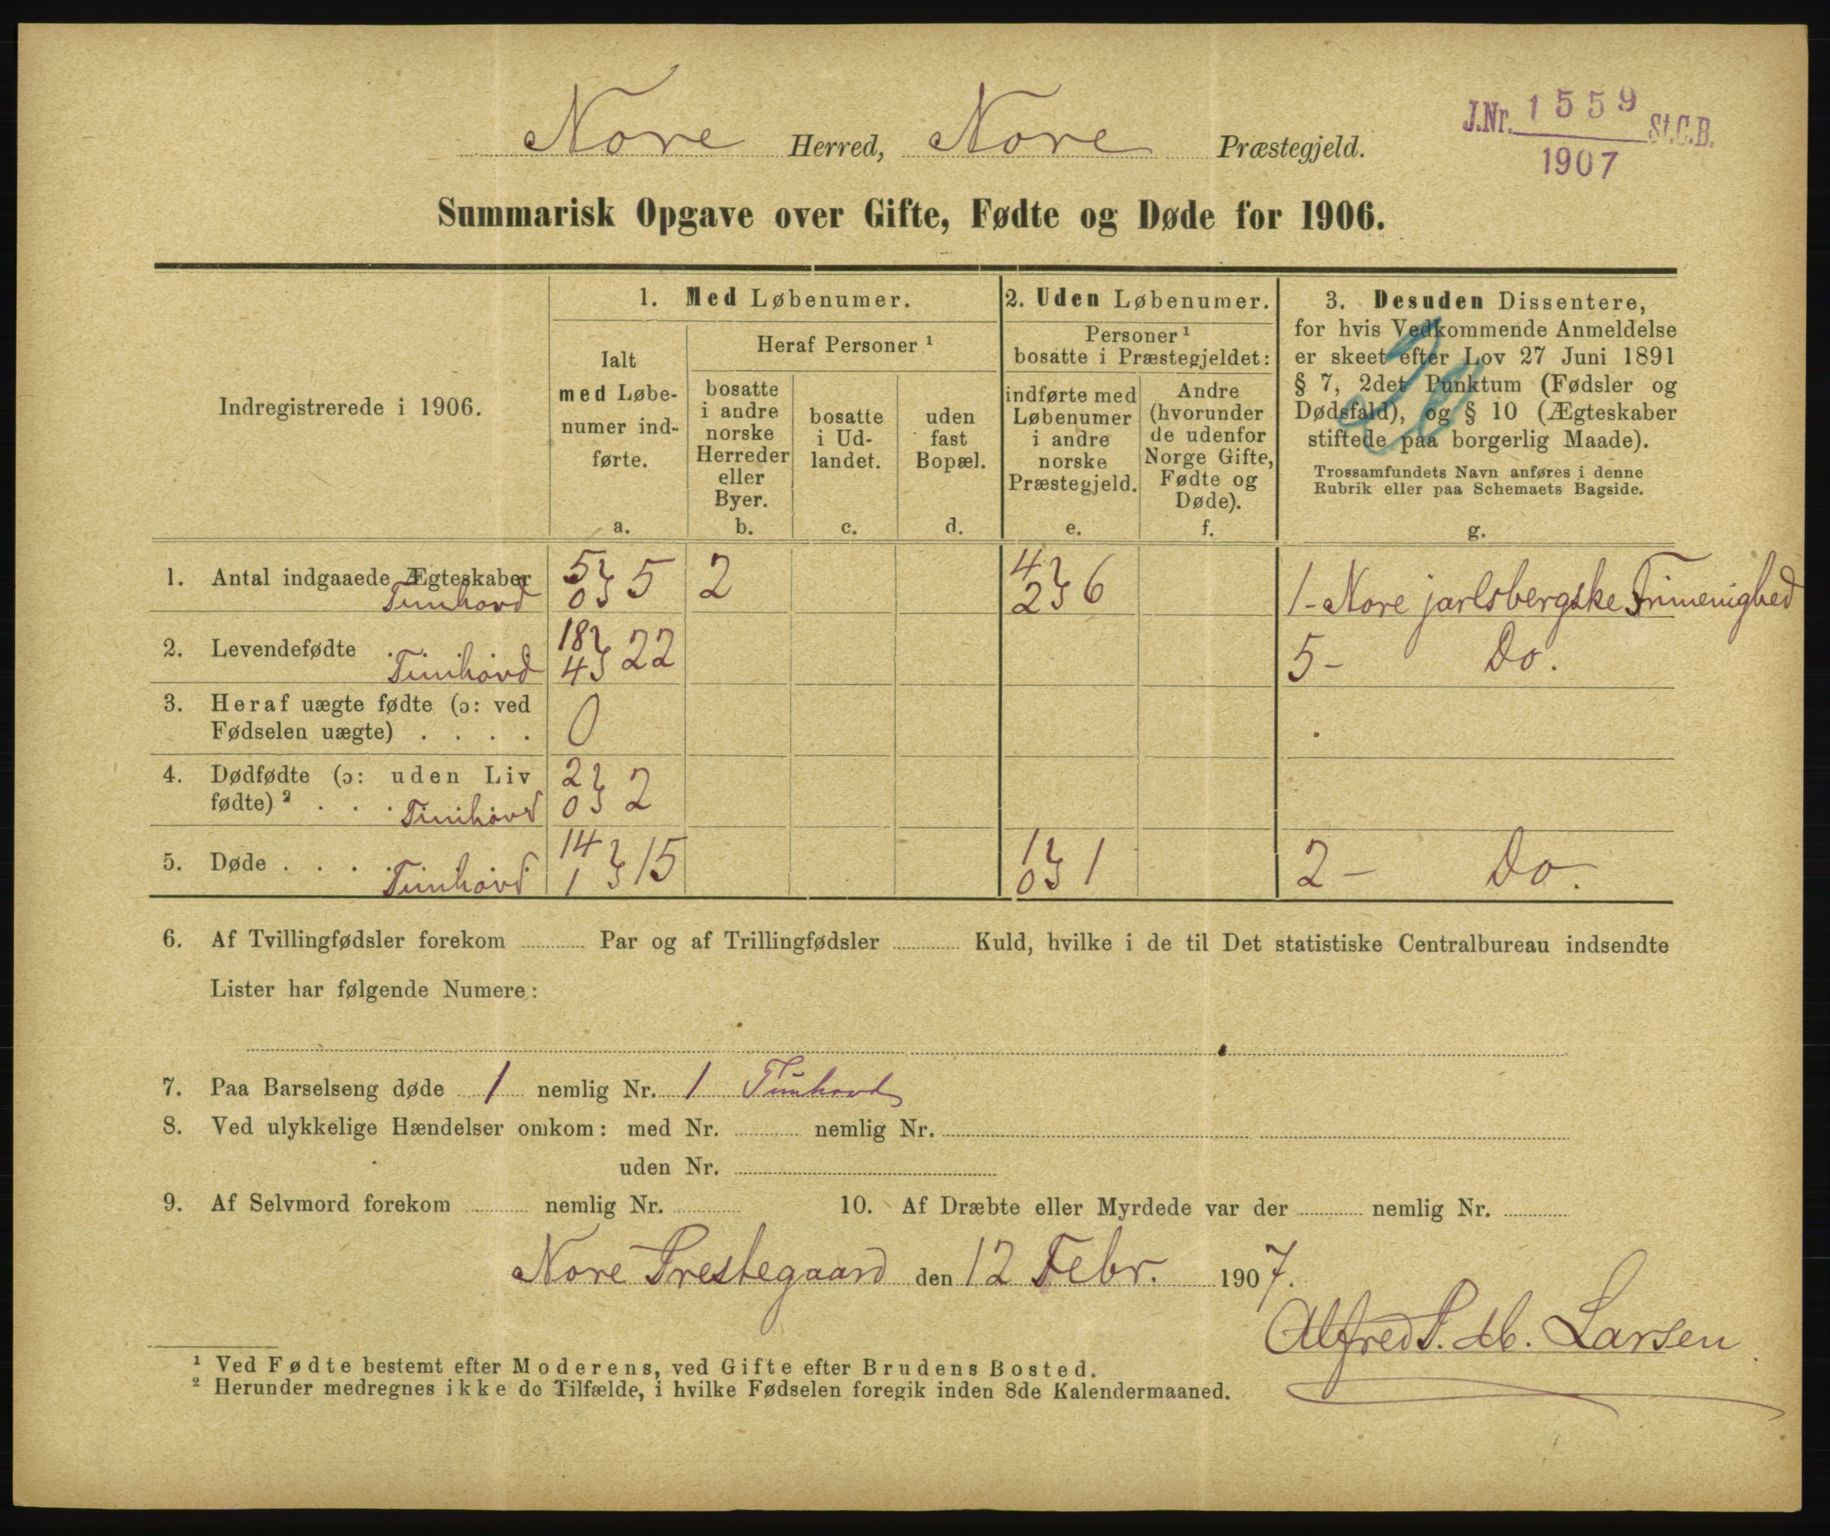 Nore Herred, Nore Præstegjeld.
J.Nr. 1559 St.C.B.
1907
Summarisk Opgave over Gifte, Fødte og Døde for 1906.
Indregistrerede i 1906.
1. Med Løbenumer.
Ialt
med Løbe-
numer ind-
førte.
a.
Heraf Personer ¹
bosatte
i andre
norske
Herreder
eller
Byer.
b.
bosatte
i Ud-
landet.
c.
uden
fast
Bopæl.
d.
2. Uden Løbenumer.
Personer ¹
bosatte i Præstegjeldet:
indførte med
Løbenumer
i andre
norske
Præstegjeld.
e.
Andre
(hvorunder
de udenfor
Norge Gifte,
Fødte og
Døde).
f.
3. Desuden Dissentere,
for hvis Vedkommende Anmeldelse
er skeet efter Lov 27 Juni 1891
§ 7, 2det Punktum (Fødsler og
Dødsfald), og § 10 (Ægteskaber
stiftede paa borgerlig Maade).
Trossamfundets Navn anføres i denne
Rubrik eller paa Schemaets Bagside.
g.
1. Antal indgaaede Ægteskaber 5 } 5 2 4 } 6 1 - Nore jarlsbergske Frimenighed
Tunhovd 0 2
2. Levendefødte 18 } 22 5 - Do.
Tunhovd 4
3. Heraf uægte fødte (ɔ: ved
Fødselen uægte) . . . . 0
4. Dødfødte (ɔ: uden Liv 2 } 2
fødte) ² . . . Tunhovd 0
5. Døde . . . . 14 } 15 1 } 1 2 - Do.
Tunhovd 1 0
6. Af Tvillingfødsler forekom Par og af Trillingfødsler Kuld, hvilke i de til Det statistiske Centralbureau indsendte
Lister har følgende Numere:
7. Paa Barselseng døde 1 nemlig Nr. 1 Tunhovd
8. Ved ulykkelige Hændelser omkom: med Nr. nemlig Nr.
uden Nr.
9. Af Selvmord forekom nemlig Nr. 10. Af Dræbte eller Myrdede var der nemlig Nr.
Nore Prestegaard den 12 Febr. 1907.
Alfred S. M. Larsen
¹ Ved Fødte bestemt efter Moderens, ved Gifte efter Brudens Bosted.
² Herunder medregnes ikke de Tilfælde, i hvilke Fødselen foregik inden 8de Kalendermaaned.